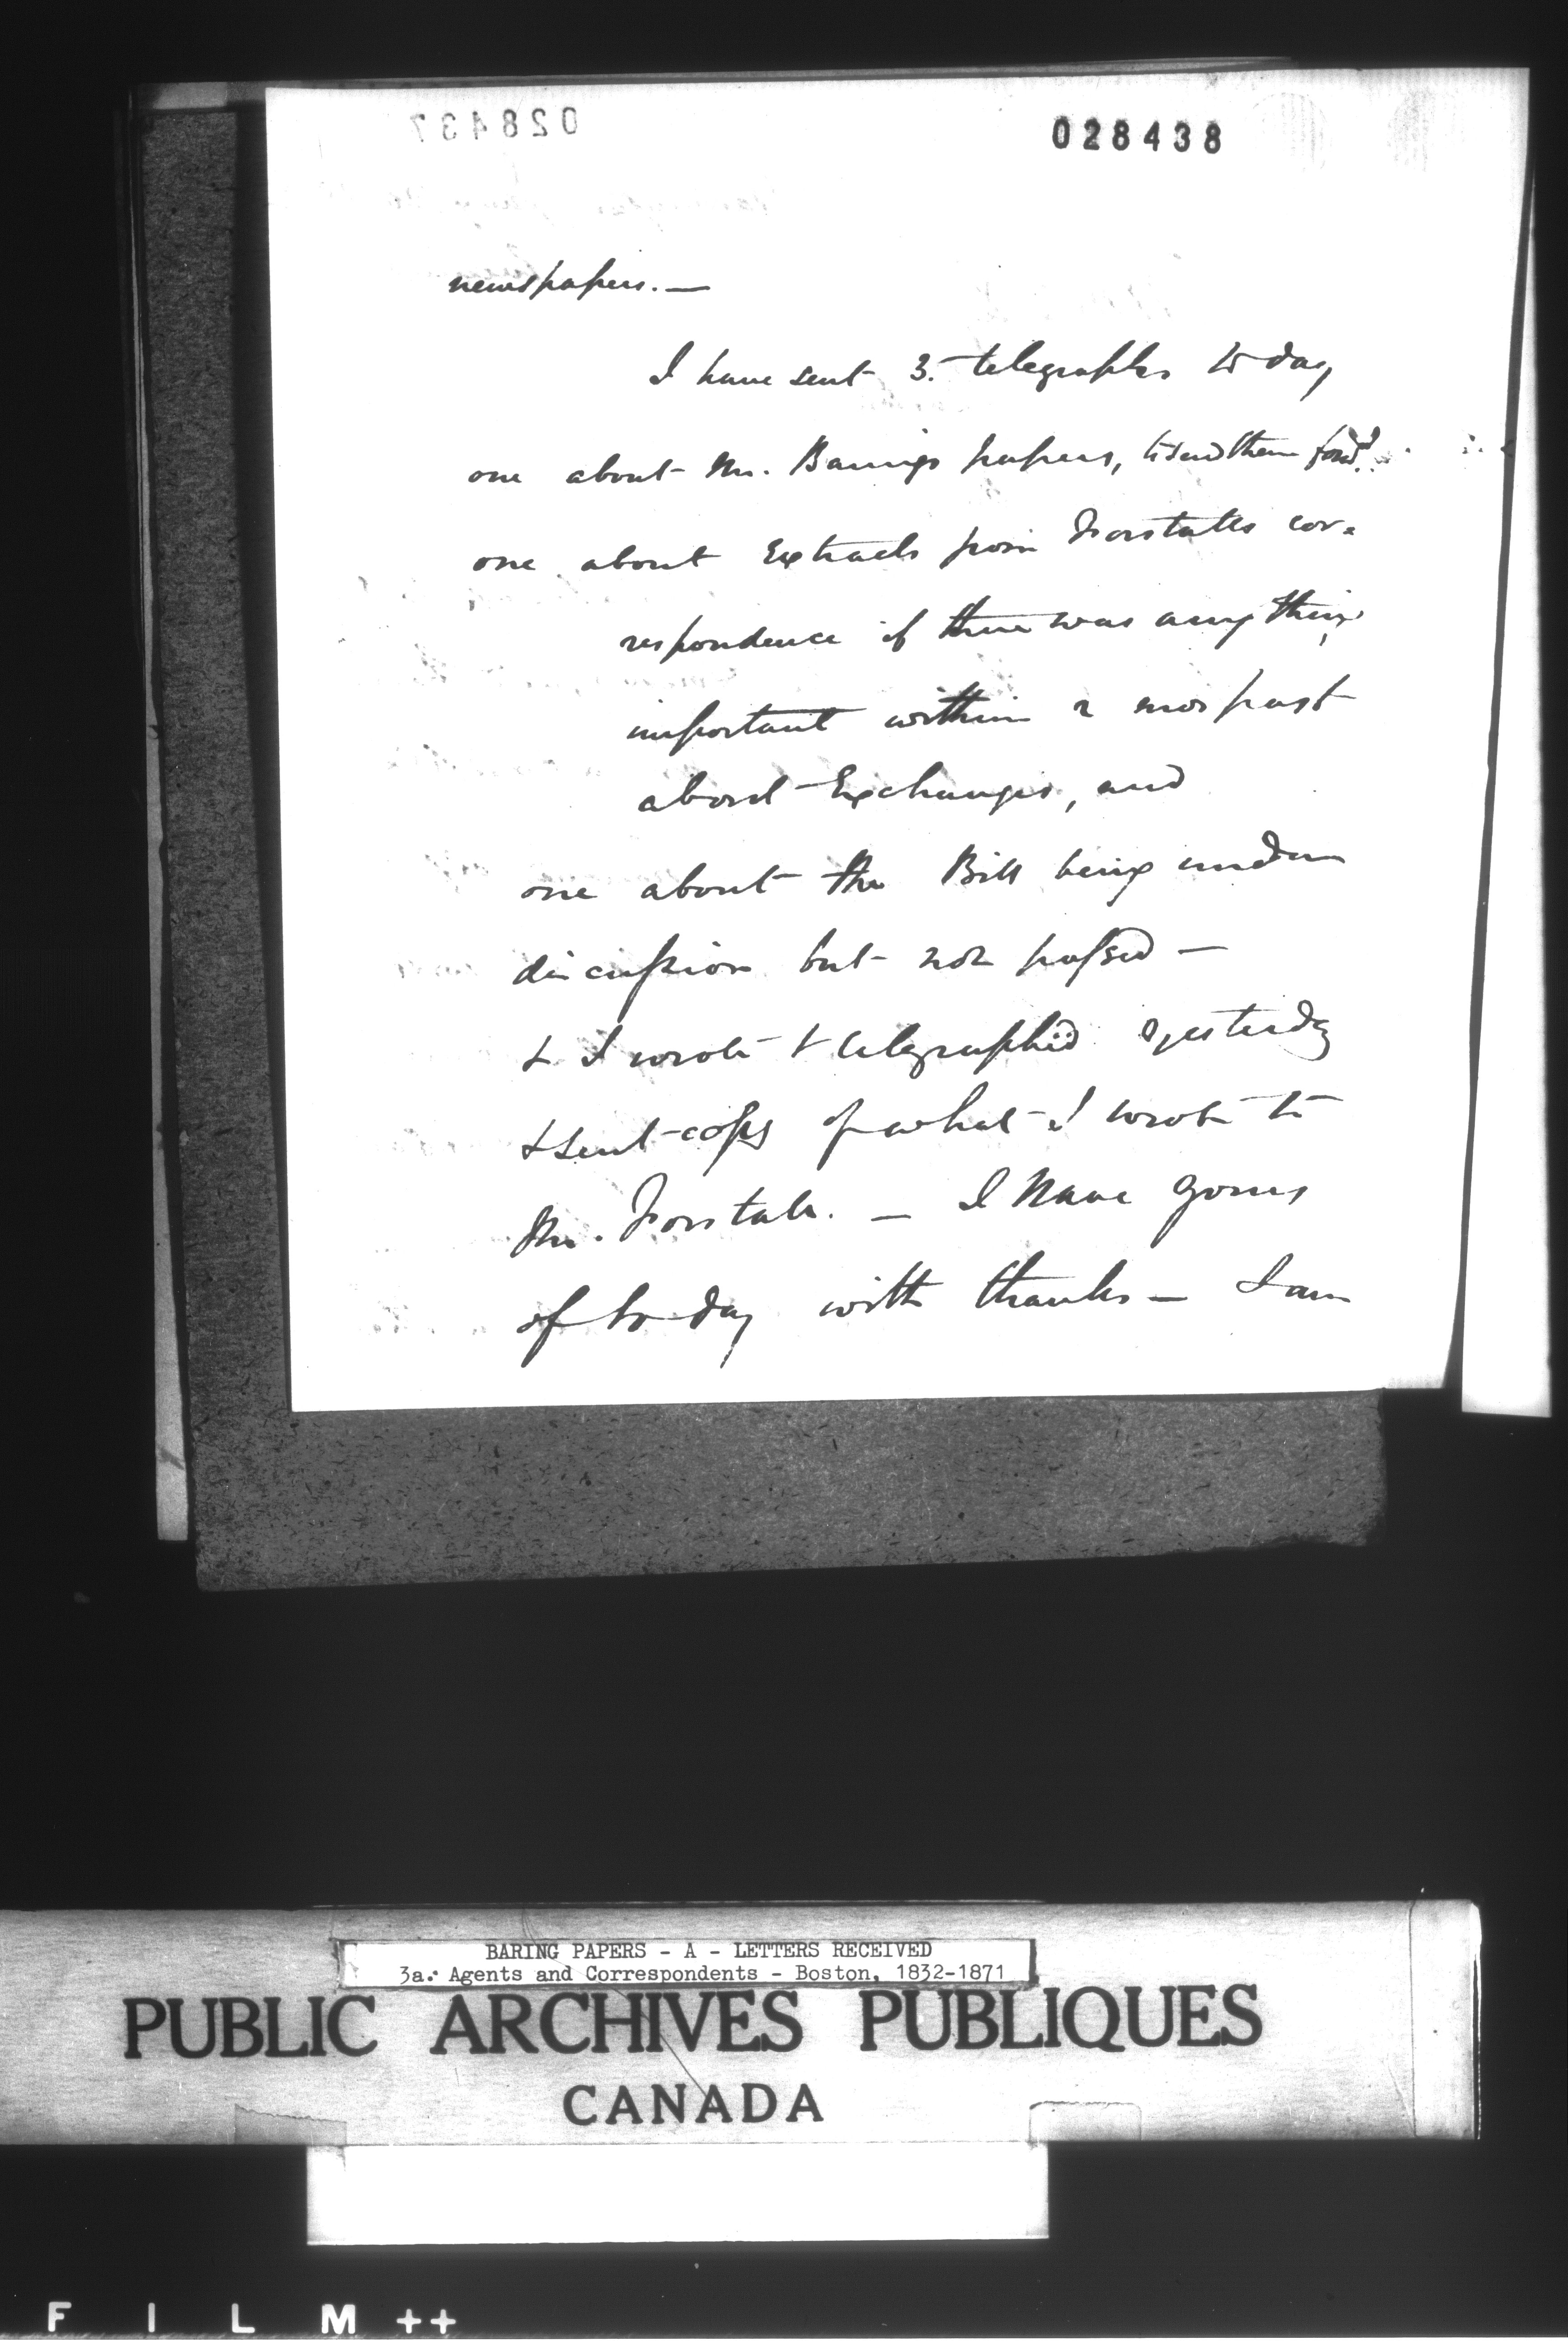 028437
028438
newspapers. —
I have sent 3. telegraphs to day
one about Mr. Barings papers, to send them forwd.
one about Extracts from Forstalls cor=
respondence if there was any thing
important within 2 mos past
about Exchanges, and
one about the Bill being under
discussion but not passed —
& I wrote & telegraphed yesterday
& sent copy of what I wrote to
Mr. Forstall. — I have yours
of to day with thanks — I am
BARING PAPERS - A - LETTERS RECEIVED
3a. Agents and Correspondents - Boston, 1832-1871
PUBLIC ARCHIVES PUBLIQUES
CANADA
FILM ++